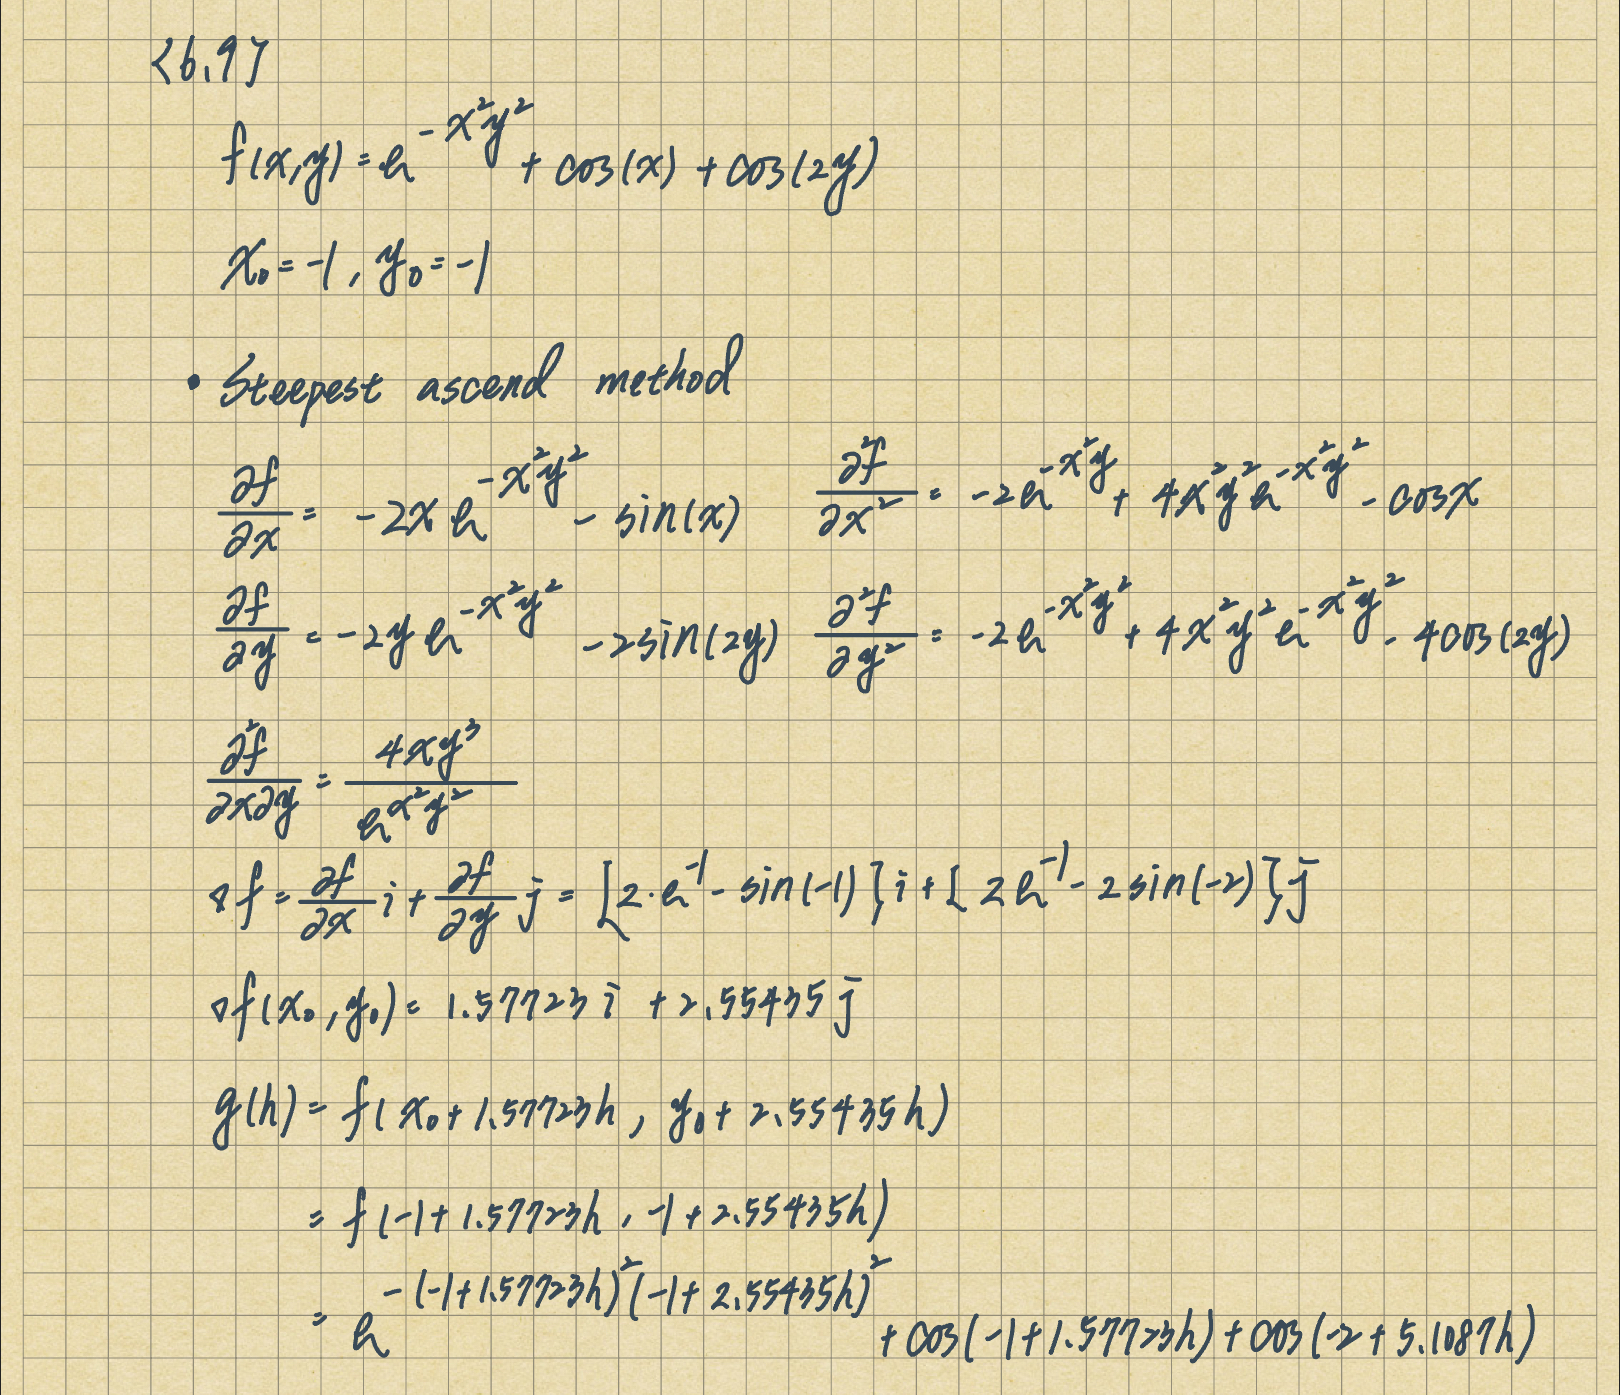 <6.9>
f(x,y) = e^{-x²y²} + cos(x) + cos(2y)
x₀ = -1, y₀ = -1
• Steepest ascend method
∂f/∂x = -2x e^{-x²y²} - sin(x)    ∂²f/∂x² = -2e^{-x²y} + 4x²y²e^{-x²y²} - cosx
∂f/∂y = -2y e^{-x²y²} - 2sin(2y)    ∂²f/∂y² = -2e^{-x²y²} + 4x²y²e^{-x²y²} - 4cos(2y)
∂²f/∂x∂y = 4xy³/e^{x²y²}
∇f = ∂f/∂x i + ∂f/∂y j = [2·e^{-1} - sin(-1)]i + [2e^{-1} - 2sin(-2)]j
∇f(x₀,y₀) = 1.57723i + 2.55435j
g(h) = f(x₀ + 1.57723h, y₀ + 2.55435h)
= f(-1 + 1.57723h, -1 + 2.55435h)
= e^{-(-1+1.57723h)²(-1+2.55435h)²} + cos(-1 + 1.57723h) + cos(-2 + 5.1087h)